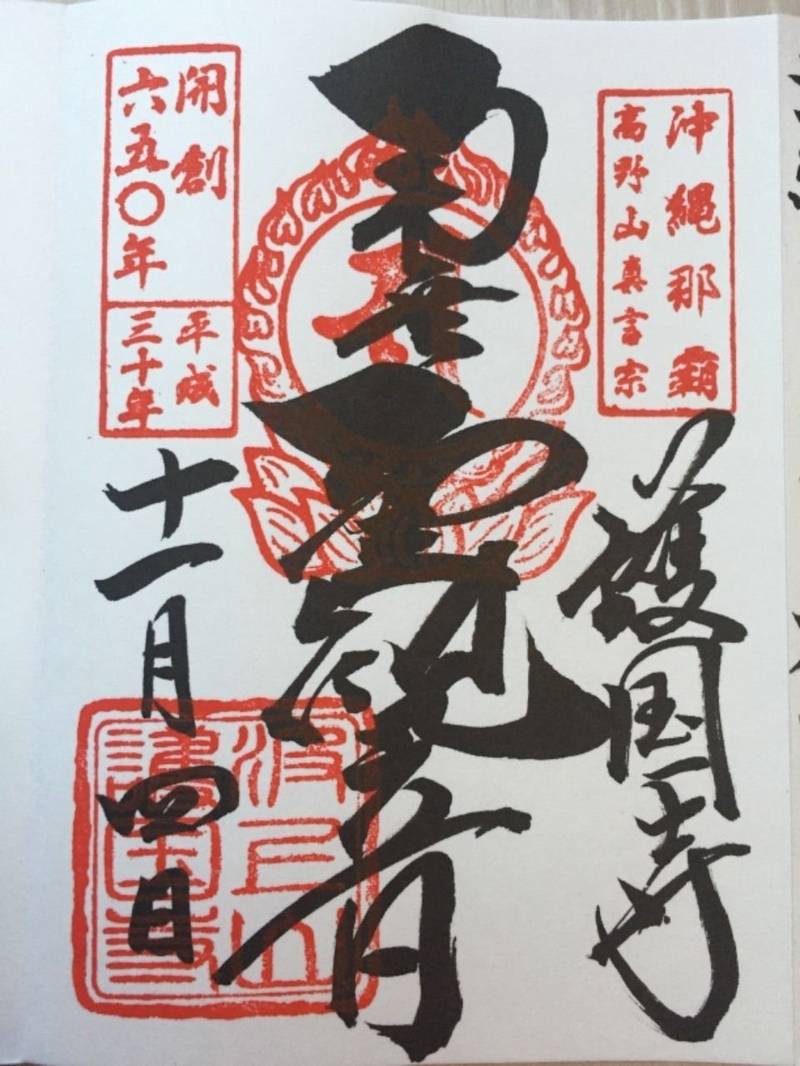 沖縄那覇
高野山真言宗
護国寺
南無聖観音
開創
六五〇年
平成
三十年
十一月四日
波上山
護国寺